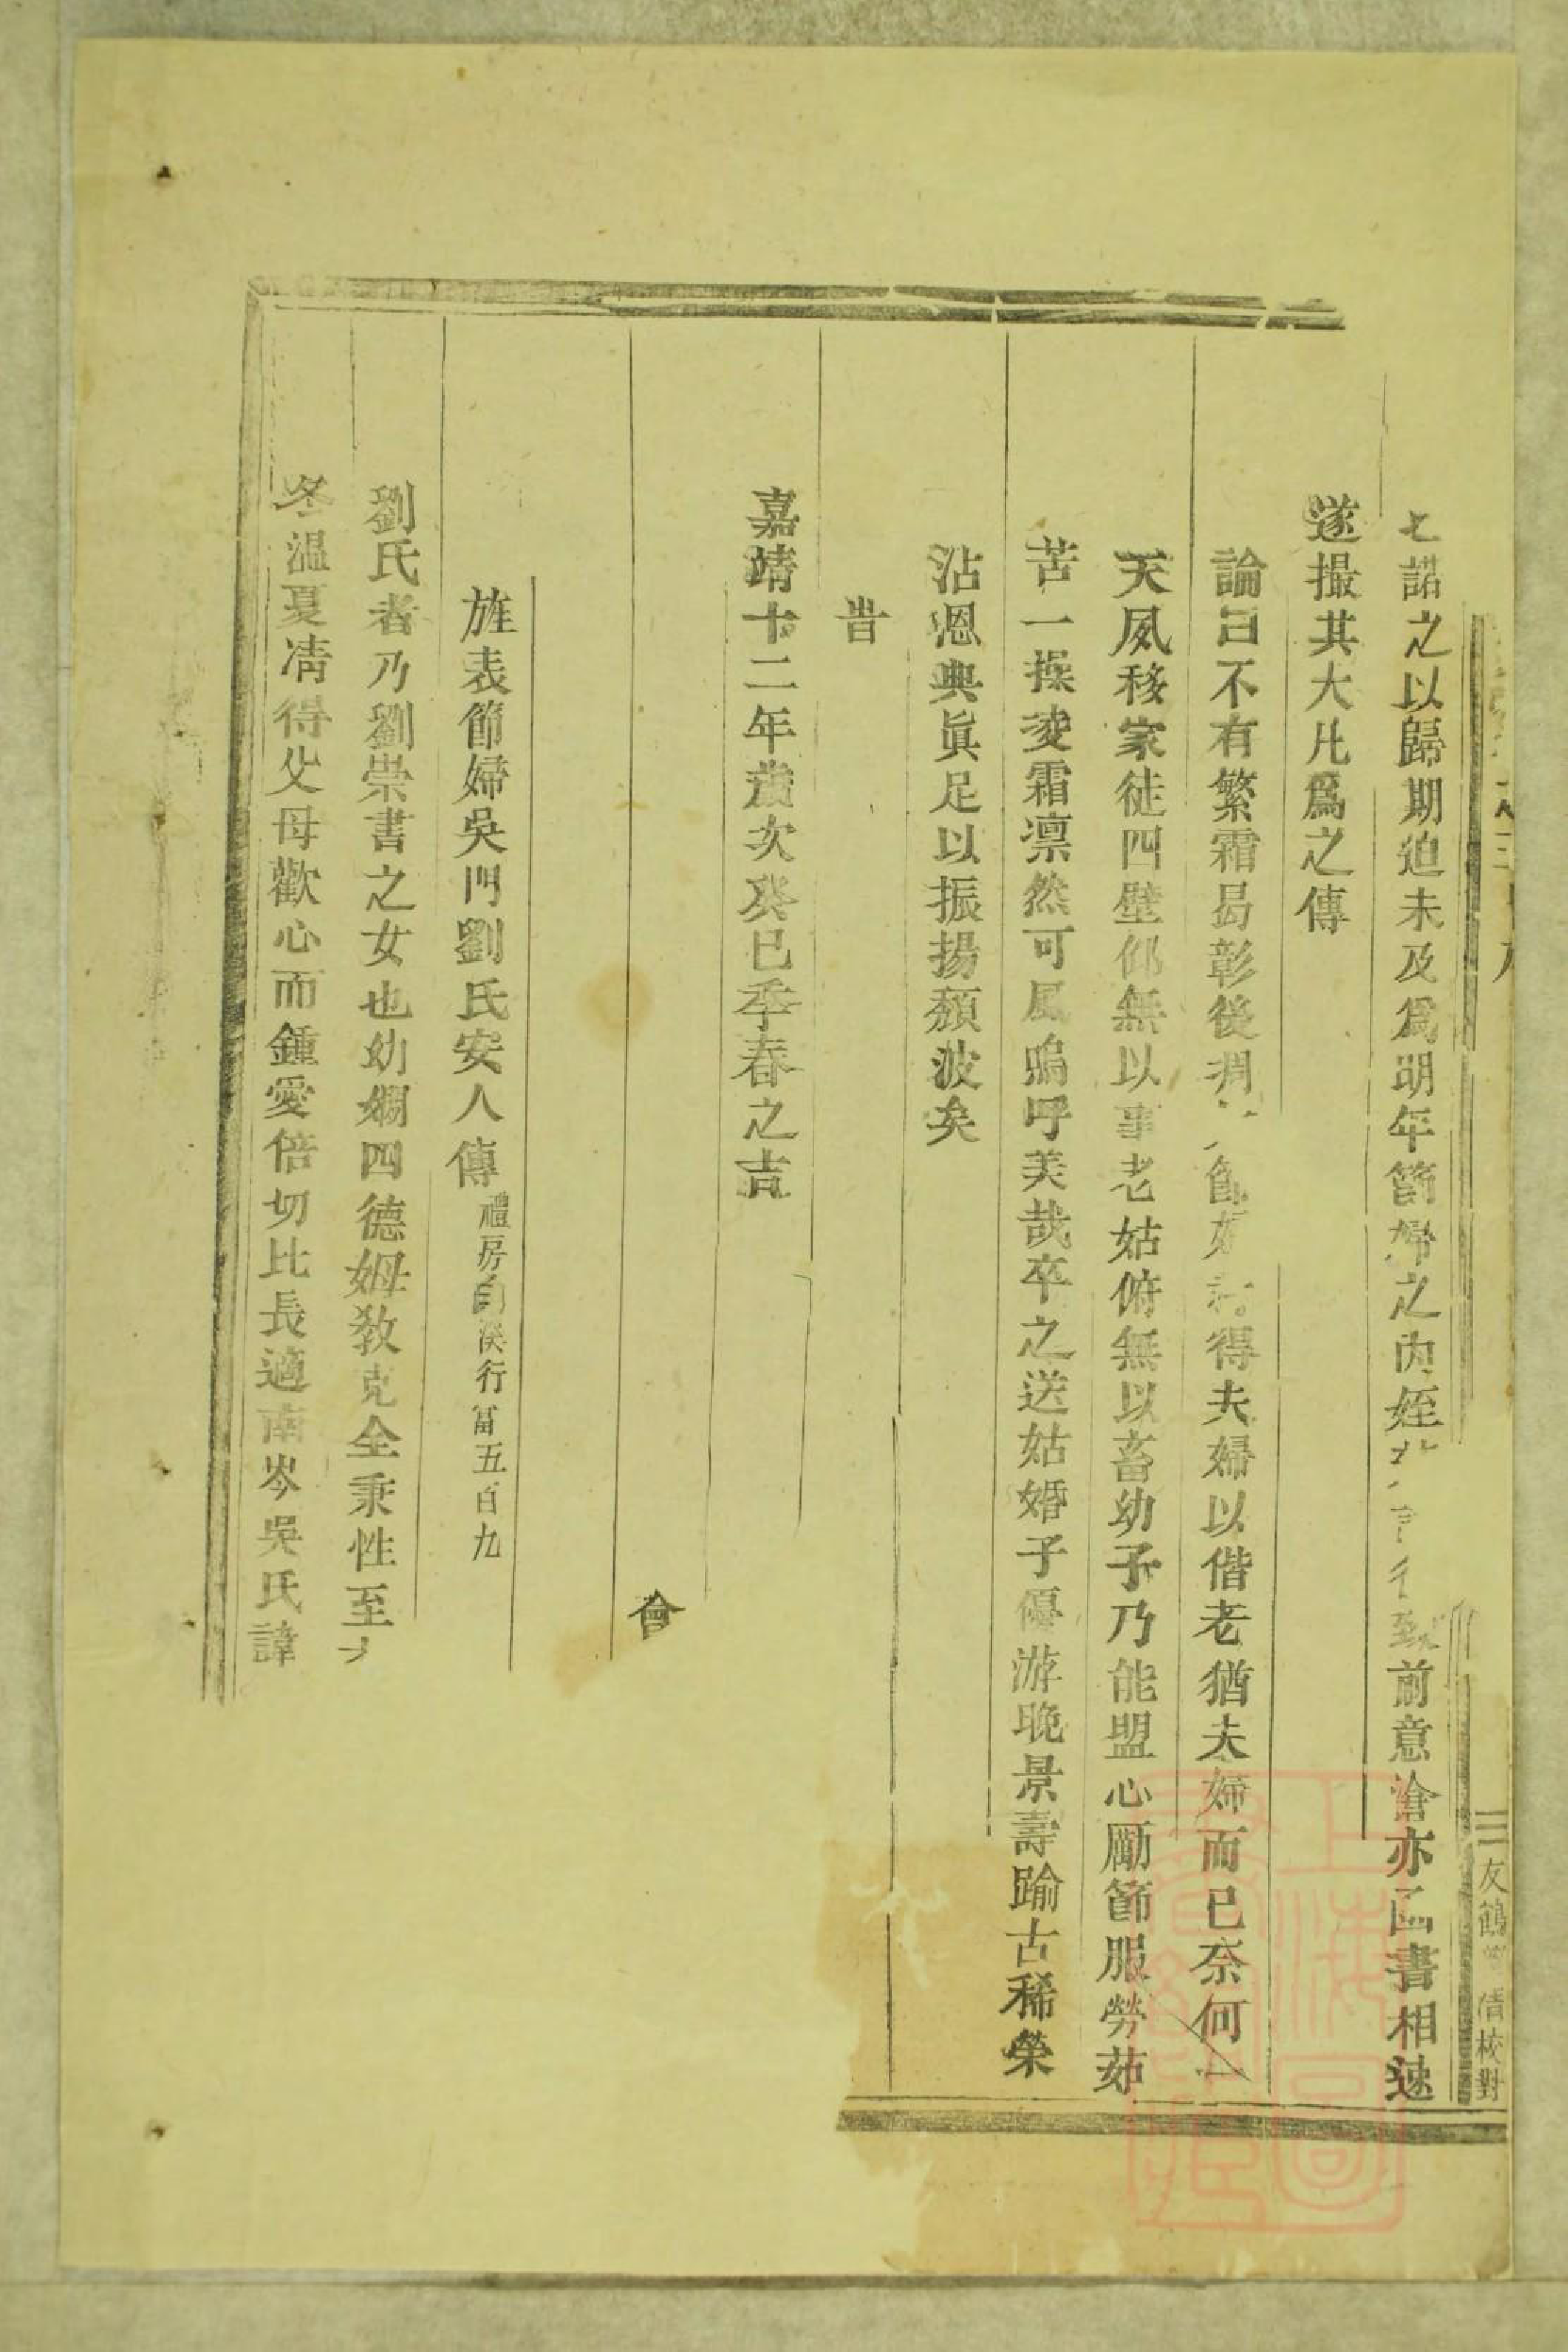 諾之以歸期迫未及爲明年節婦之內姪前意滄亦函書相速
遂撮其大凡爲之傳
論曰不有繁霜曷彰後凋節得夫婦以偕老猶夫婦而已奈何
天夙移家徒四壁仰無以事老姑俯無以畜幼子乃能盟心勵節服勞茹
苦一操凌霜凛然可風嗚呼美哉卒之送姑婚子優游晚景壽踰古稀榮
沾恩典眞足以振揚頹波矣
旹
嘉靖十二年歲次癸巳季春之吉
會
旌表節婦吳門劉氏安人傳禮房白溪行富五百九
劉氏者乃劉崇書之女也幼嫻四德姆教克全秉性至
冬溫夏凊得父母歡心而鍾愛倍切比長適南岑吳氏諱
友鶴 倩校對